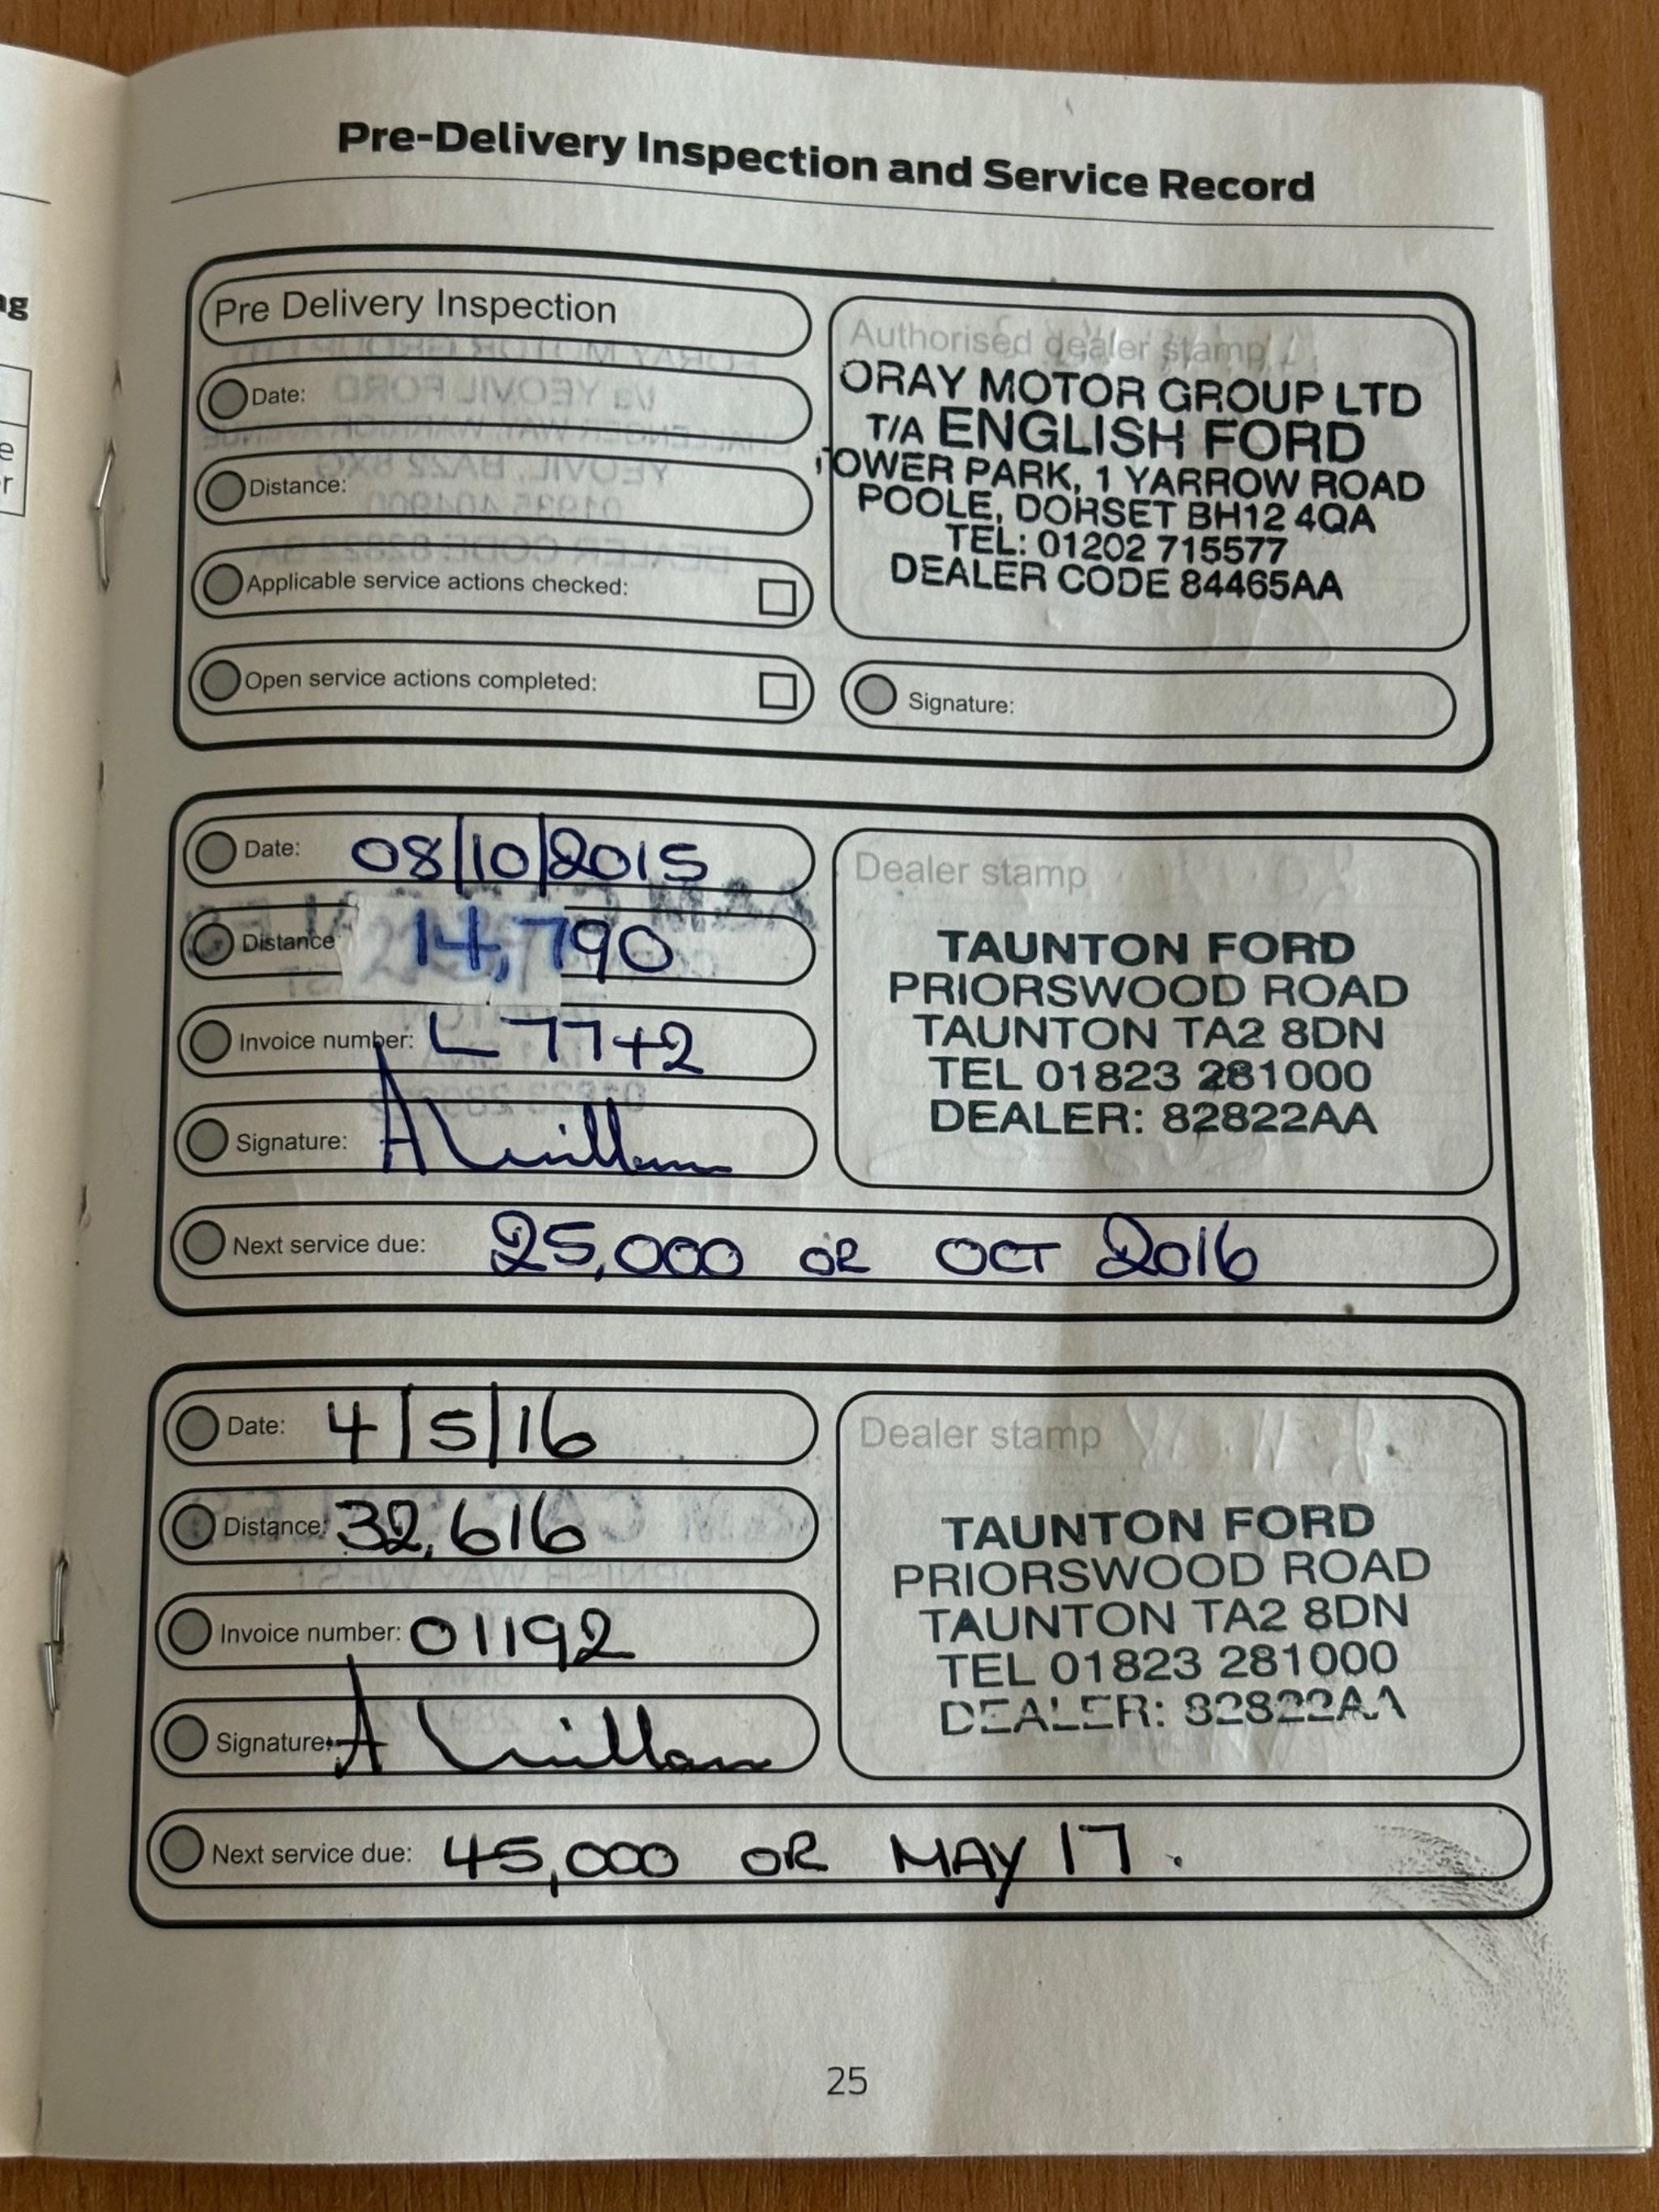 Pre-Delivery Inspection and Service Record
Pre Delivery Inspection
Date:
Distance:
Applicable service actions checked:
Open service actions completed:
Authorised dealer stamp
ORAY MOTOR GROUP LTD
T/A ENGLISH FORD
TOWER PARK, 1 YARROW ROAD
POOLE, DORSET BH12 4QA
TEL: 01202 715577
DEALER CODE 84465AA
Signature:
Date: 08/10/2015
Distance 14,790
Invoice number: L 77+2
Signature:
Dealer stamp
TAUNTON FORD
PRIORSWOOD ROAD
TAUNTON TA2 8DN
TEL 01823 281000
DEALER: 82822AA
Next service due: 25,000 OR OCT 2016
Date: 4/5/16
Distance: 32,616
Invoice number: 01192
Signature:
Dealer stamp
TAUNTON FORD
PRIORSWOOD ROAD
TAUNTON TA2 8DN
TEL 01823 281000
DEALER: 82822AA
Next service due: 45,000 OR MAY 17.
25